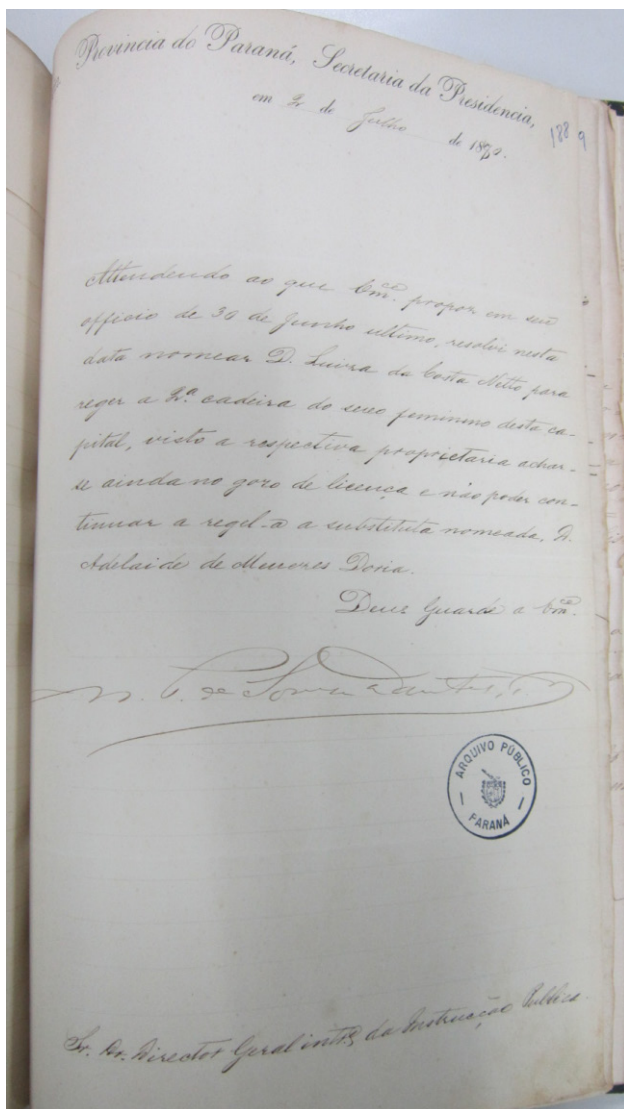 Provincia do Paraná, Secretaria da Presidencia,
em 2 de Julho de 1880.
188 9
Attendendo ao que Vm.ce propoz em seu
officio de 30 de Junho ultimo, resolvi nesta
data nomear D. Luiza da Costa Netto para
reger a 2.ª cadeira do sexo feminino desta ca-
pital, visto a respectiva proprietaria achar-
se ainda no gozo de licença e não poder con-
tinuar a regel-a a substituta nomeada, D.
Adelaide de Menezes Doria.
Deus Guarde a Vm.ce
de Souza Dantas
ARQUIVO PÚBLICO
PARANÁ
Sr. Dr. Director Geral int.º da Instrucção Publica.